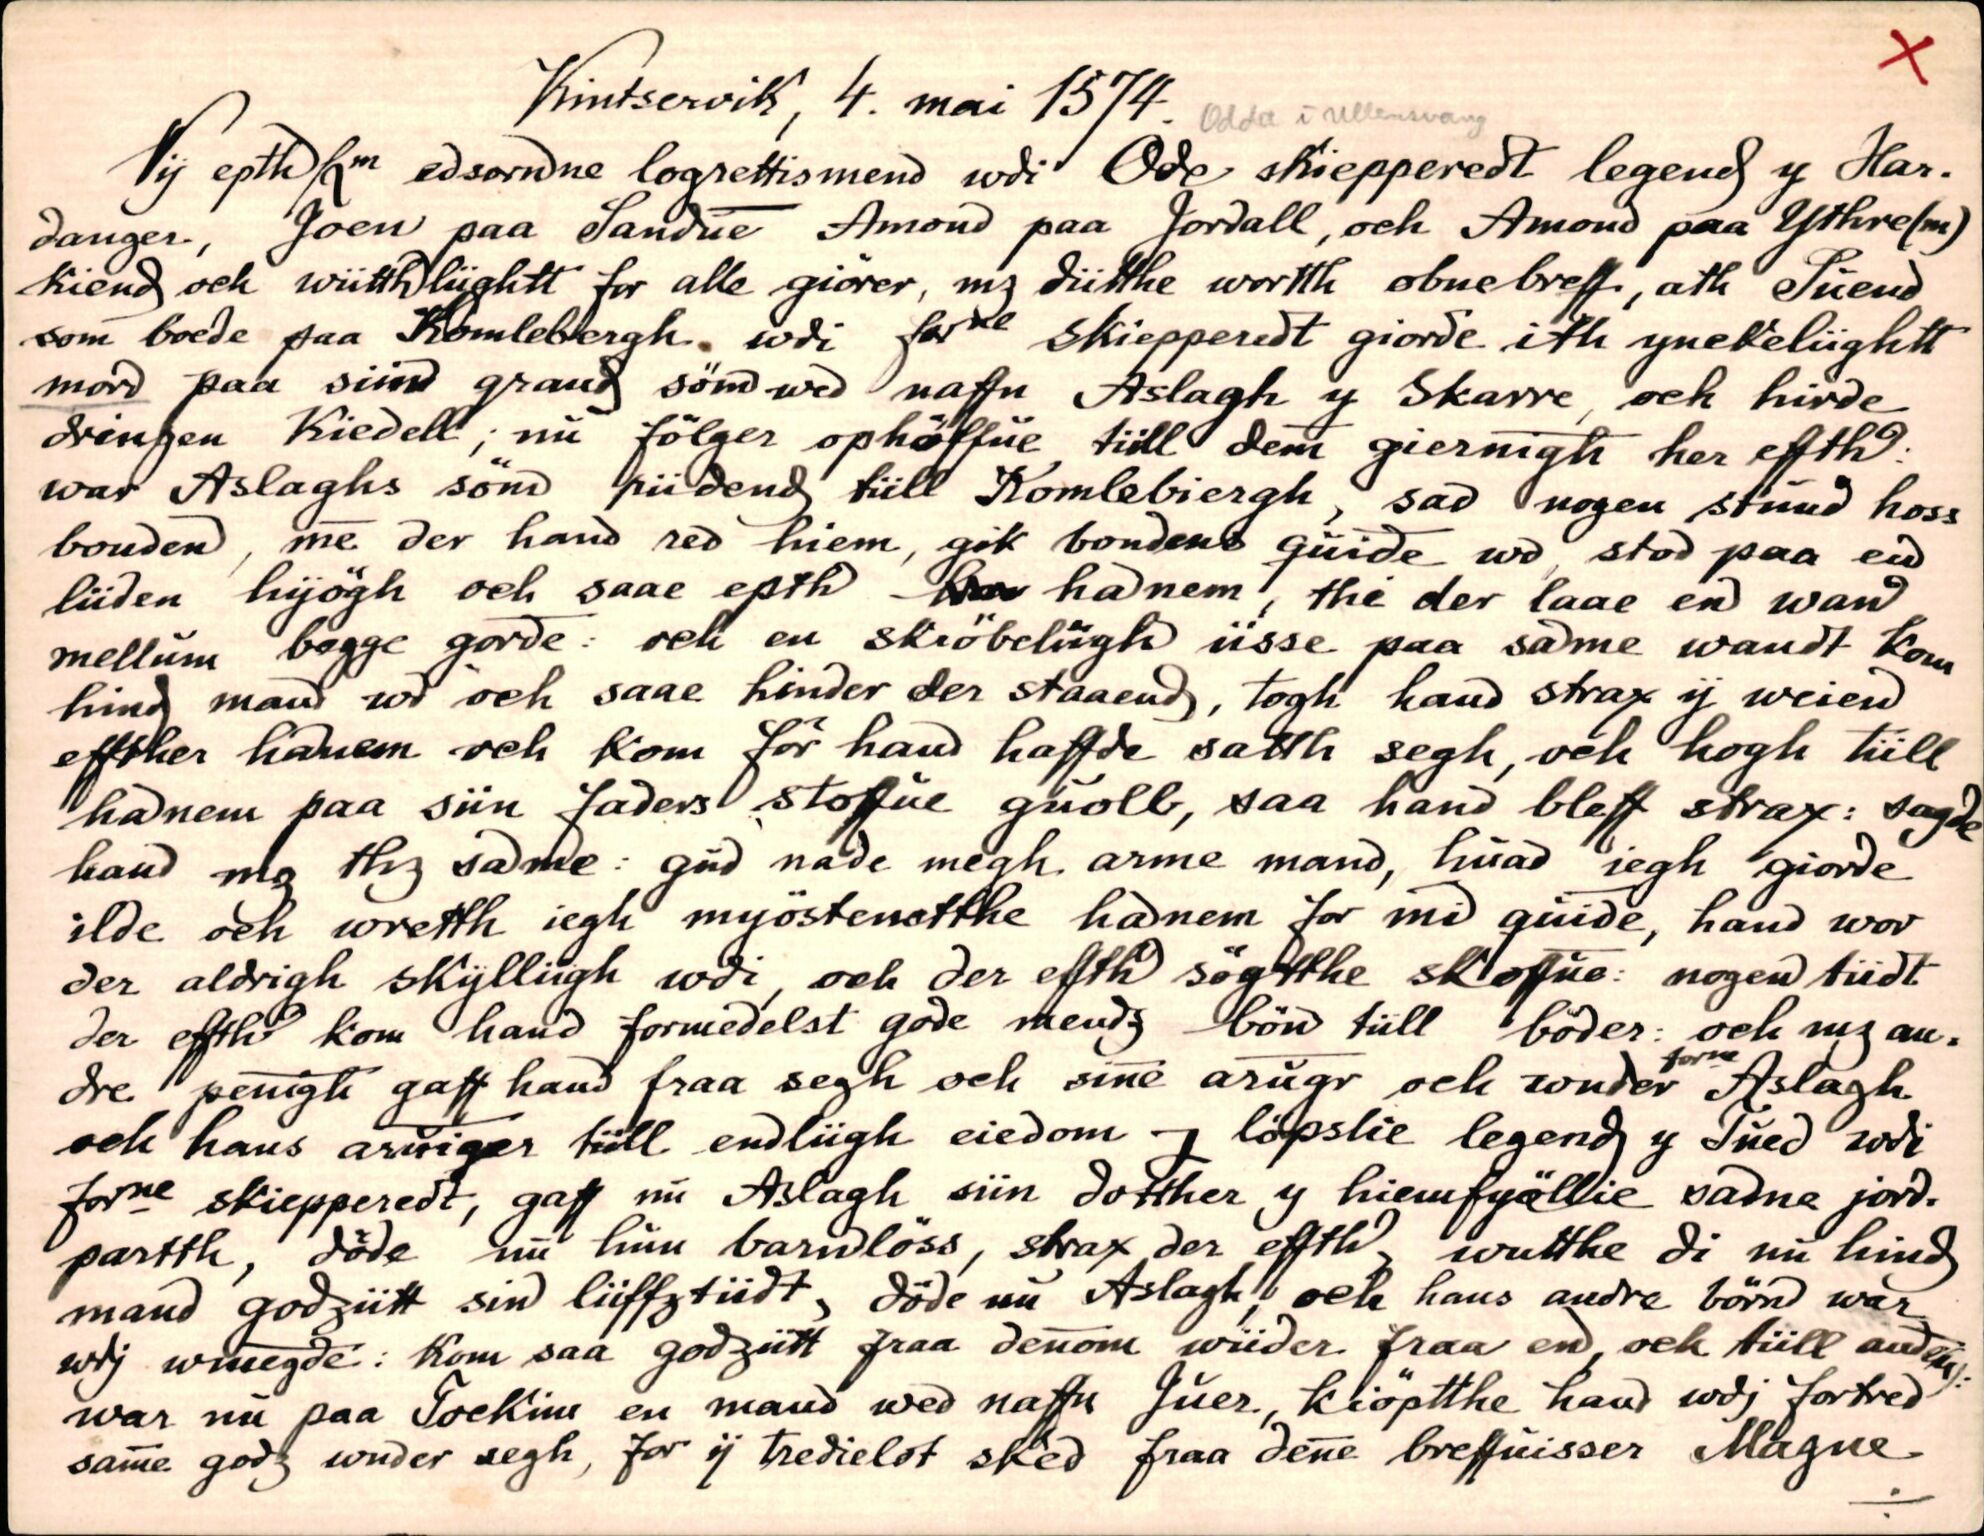 Kintservik, 4. mai 1574.
Odda i Ullensvang
Vij epth edsorndne logrettismend wdi Ode skiepperedt legend y Har-
danger, Joen paa Sandue Amond paa Jordall, och Amond paa Ythre(m)
kiend och wiitthliightt for alle giörer, mz diitthe wortth obnebreff, ath Suend
som boede paa Komlebergh wdi forne skiepperedt giorde ith ynckeliightt
mord paa siind grand sömd wed naffn Aslagh y Skarre, och hirde
dringen Kiedell; nu fölger ophöffue tiill dem giernigh her effth:
war Aslaghs sömd riidend tiill Komlebiergh, sad nogen stund hoss
bonden, me der hand red hiem, gik bondens quide wd, stod paa en
liiden hijögh och saae epth hanem, thi der laae en wand
mellum begge gorde: och en skröbeliigh iisse paa same wandt kom
hind mand wd och saae hinder der staaend, togh hand strax ij weien
effther hanem och kom för hand haffde satth segh, och hogh tiill
hanem paa siin faders stoffue guolb, saa hand bleff strax: sagde
hand mz thz same: gud nade megh arme mand, huad iegh giorde
ilde och wretth iegh myöstenctthe hanem for mid quide, hand wor
der aldrigh skylliigh wdi, och der effth sögtthe skoffue: nogen tiidt
der effth kom hand formedelst gode mendz bön tiill böder: och mz an-
dre penigh gaff hand fraa segh och sine arugr och wnder forne Aslagh
och hans aruiger tiill endliigh eiedom löpslie legend y Tued wdi
forne skiepperedt, gaff nu Aslagh siin dotther y hiemfyöllie sadne jord-
partth, döde nu hun barnlöss, strax der effth, wutthe di nu hind
mand godziitt sin liiffztiidt, döde nu Aslagh, och hans andre börnd war
wdj wmegde: kom saa godziitt fraa denom wiider fraa en, och tiill anden:
war nu paa Tockim en mand wed naffn Juer, kiöptthe hand wdj fortred
same godz wnder segh, for ij tredielot sked fraa dene breffuisser Magne
÷